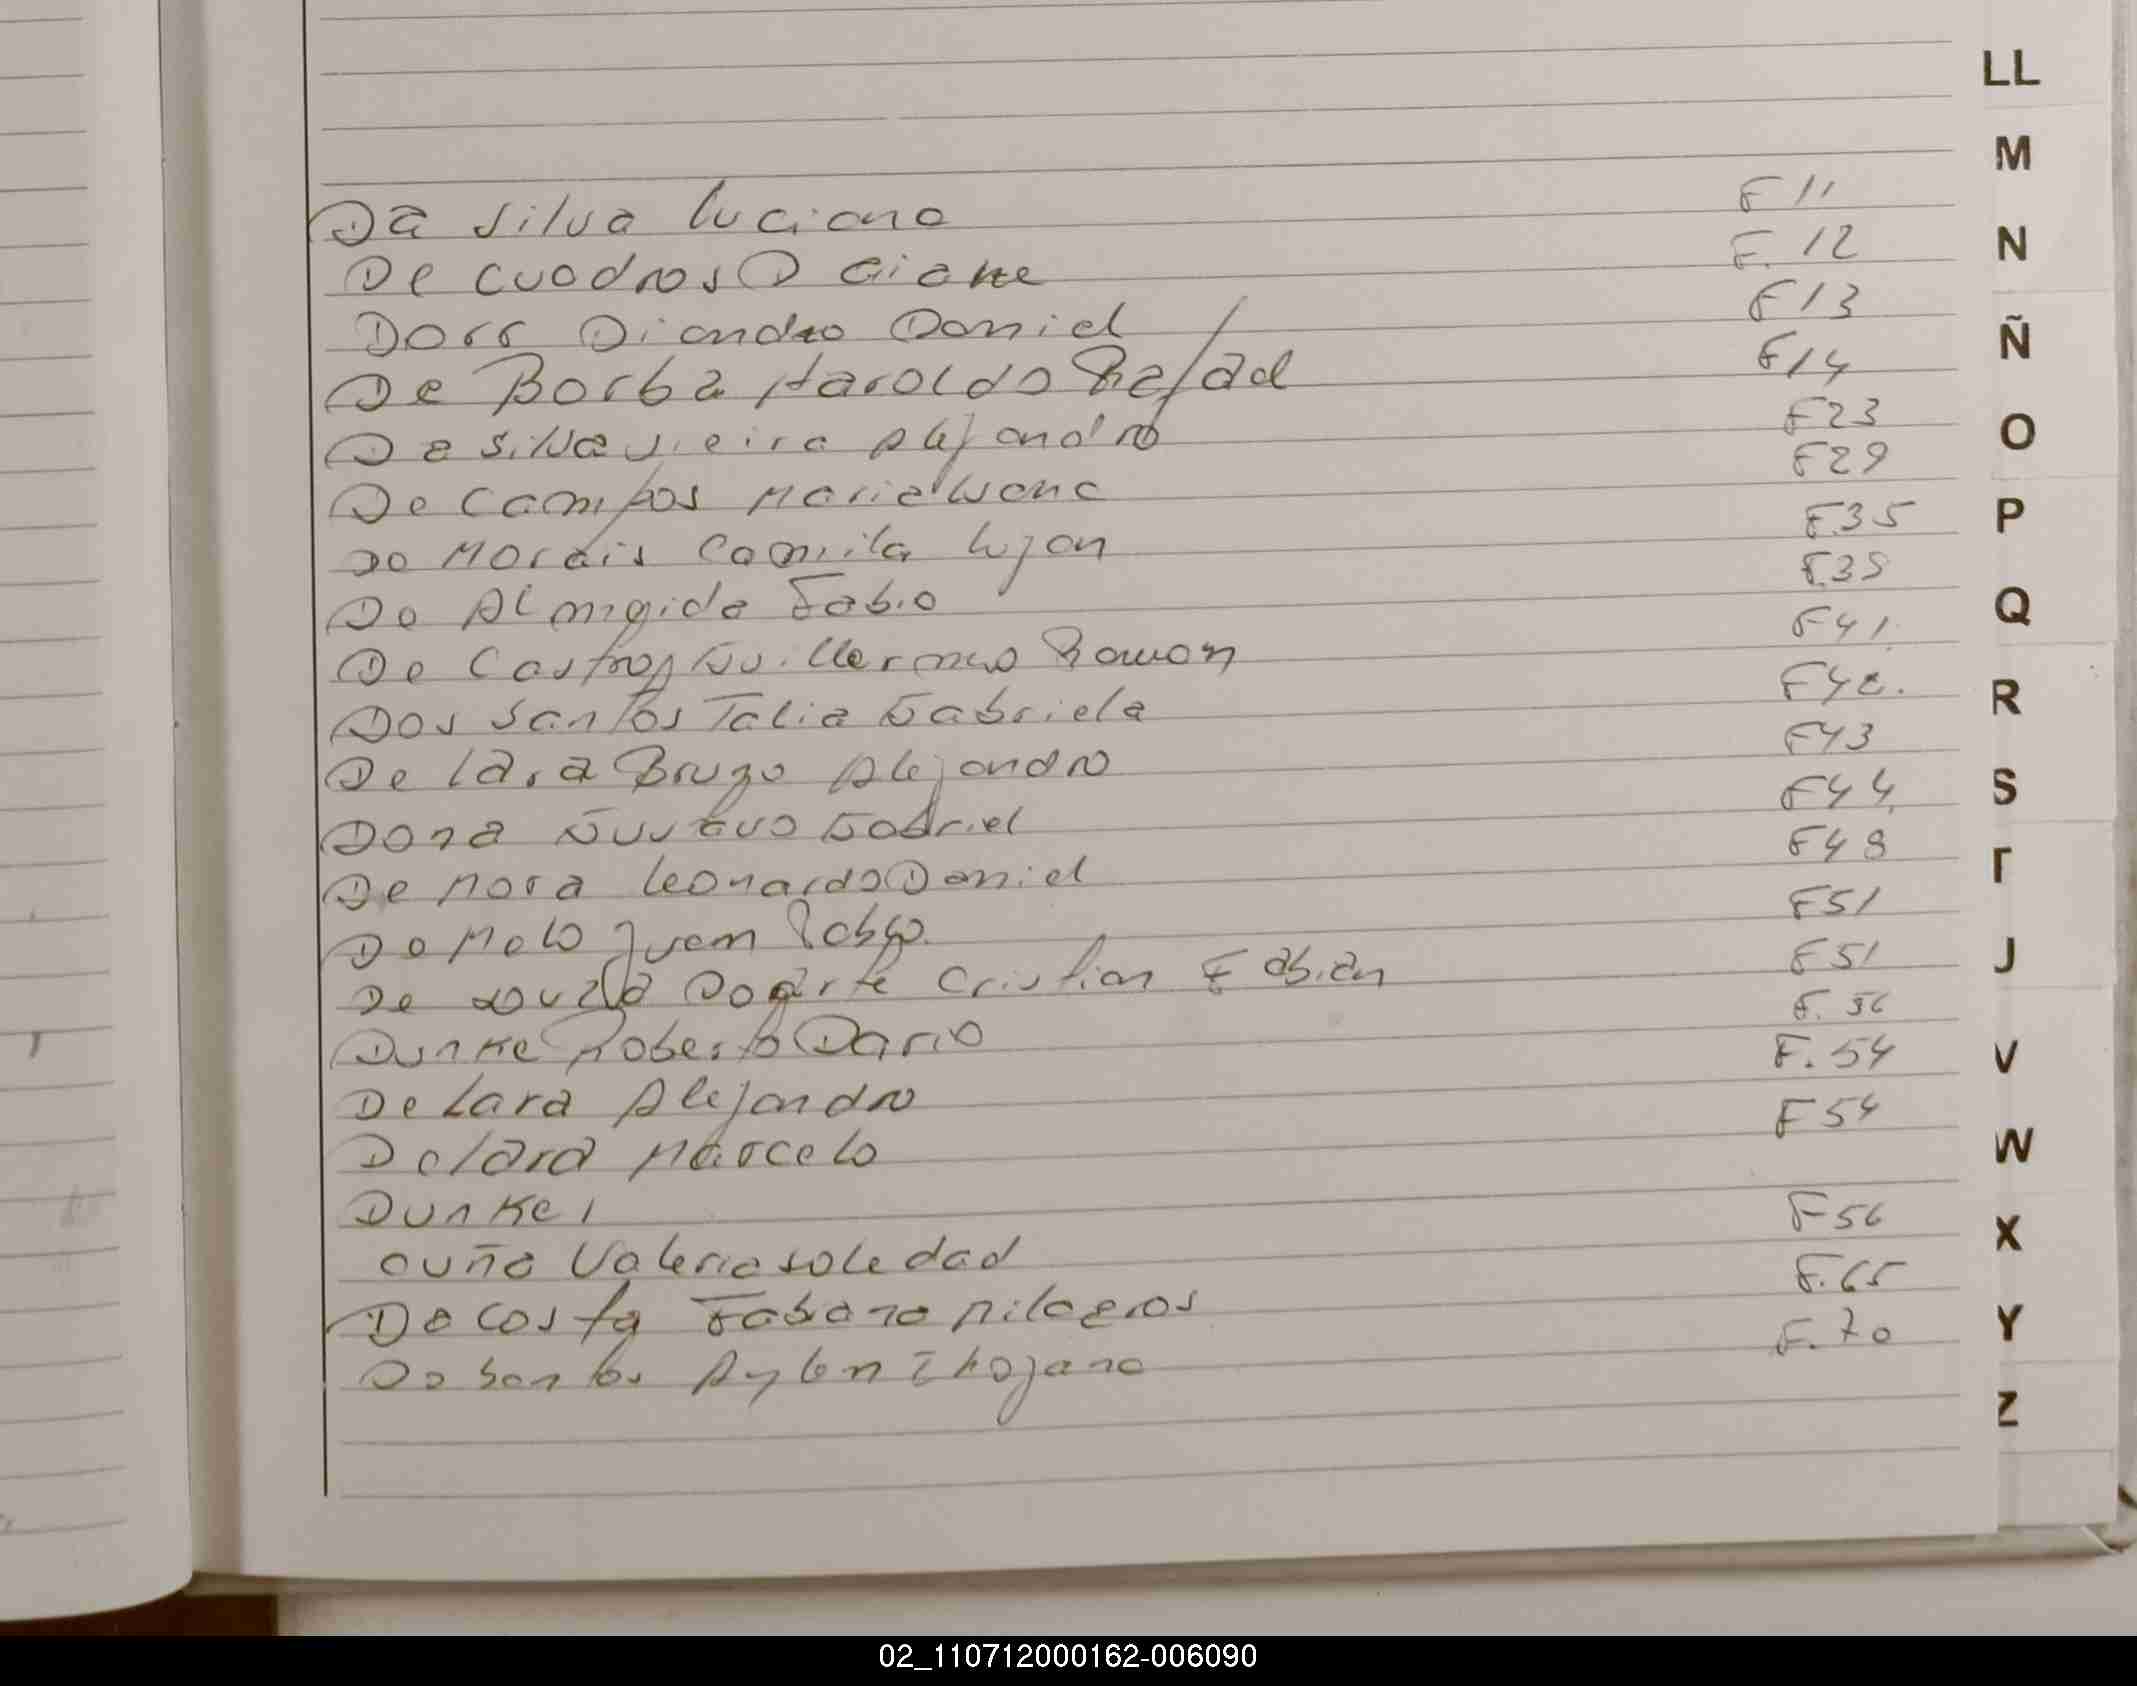 Da silva Luciano F 11
De cuadros Daiane F. 12
Dorr Diandro Daniel F 13
De Borba Haroldo Rafael F 14
Da silva vieira Alejandro F 23
De Campos Maria F 29
De Morais Camila Lujan F.35
De Almeida Fabio
De Castro Guillermo Ramon F 41
Dos santos Talia Gabriela
De lara Brugo Alejandro F43
Gustavo Gabriel F44
De Mora Leonardo Daniel
De Melo Juan Pablo. F51
De souza Doarte Cristian Fabian F51
Dunke Roberto Dario F. 56
De Lara Alejandro F. 54
De lara Marcelo F 54
Dunke
Valeria soledad F 56
De costa Milagros F.65
F. 70
LL
M
N
Ñ
O
P
Q
R
S
T
J
V
W
X
Y
Z
02_110712000162-006090